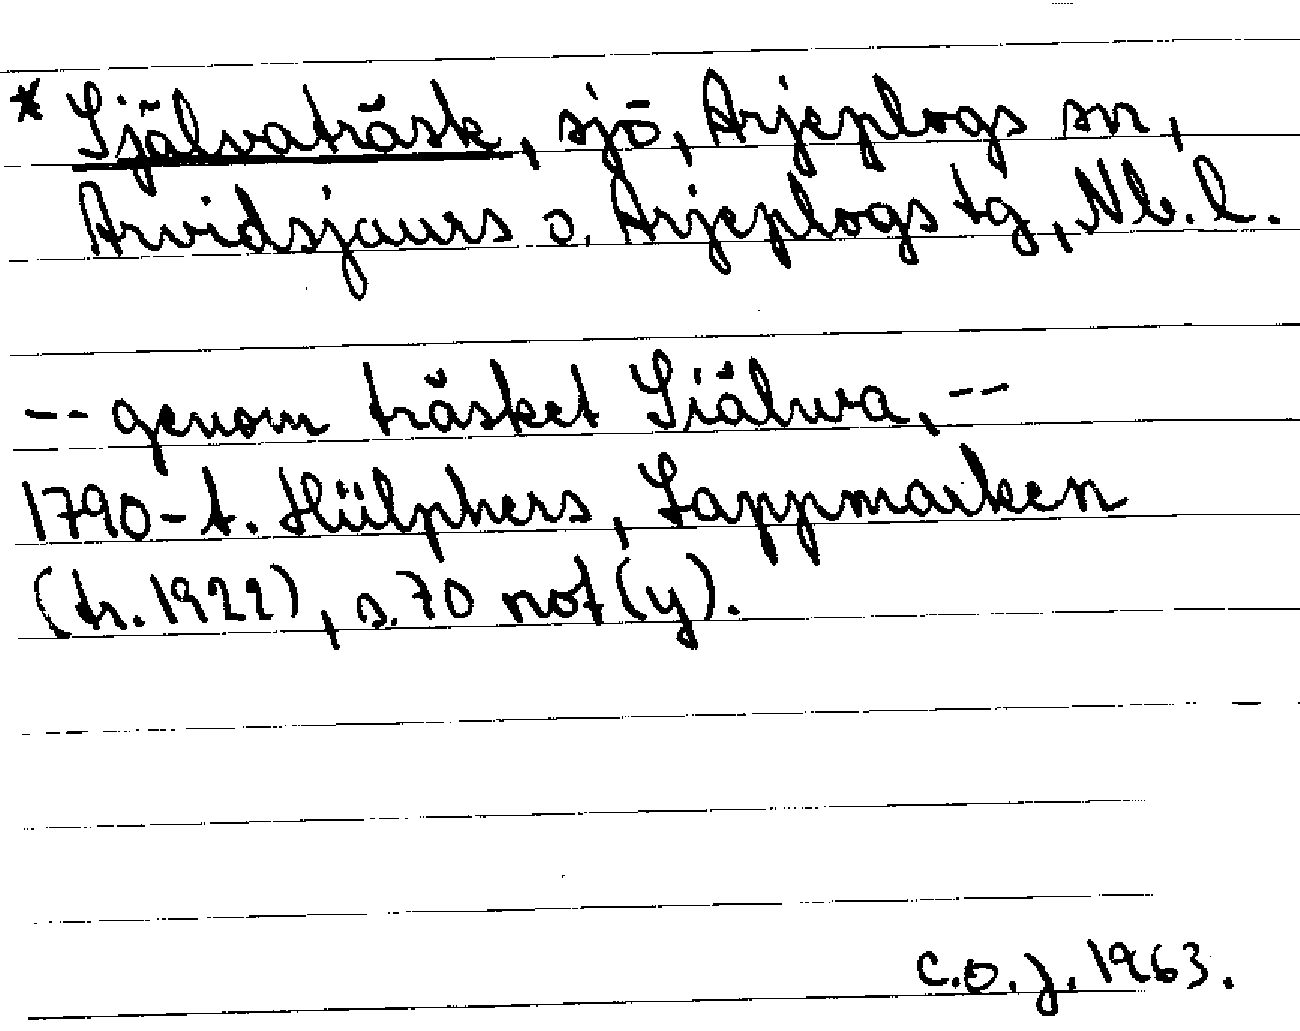 * Självaträsk, sjö, Arjeplogs sn,
Arvidsjaurs o. Arjeplogs tg, Nb. l.
-- genom träsket Siälwa, --
1790-t. Hülphers, Lappmarken
(tr. 1922), s. 70 not (y).
C.O.J. 1963.